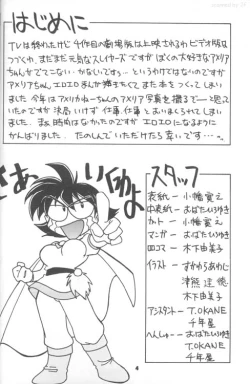 はじめに
TVは終わったけど 千作目の劇場版は上映されるわ ビデオ版も
つづくわ、まだまだ元気なスレイヤーズですが ぼくの大好きなアメリア
ちゃんがでてこない、かなしいです。。というわけではないのですが
アメリアちゃん エロエロまんが描きたくて また本を つくって しまい
ました
いったのですが 決局 いけず 仕事、仕事と おいまくられてしまい
ました。まぁ 時間はなかったのですが エロエロになるように
がんばりました。たのしんで いただけたら 幸いです…。
さぁ いくわよ
スタッフ
表紙ー小幡寛之
中表紙ーおばたひろゆき
カットー小幡寛之
マンガーおばたひろゆき
四コマー木下由美子
イラストーずからあめじ
木下由美子
アシスタントーT.OKANE
千年屋
へんしゅーーおばたひろゆき
T.OKANE
千年屋
4